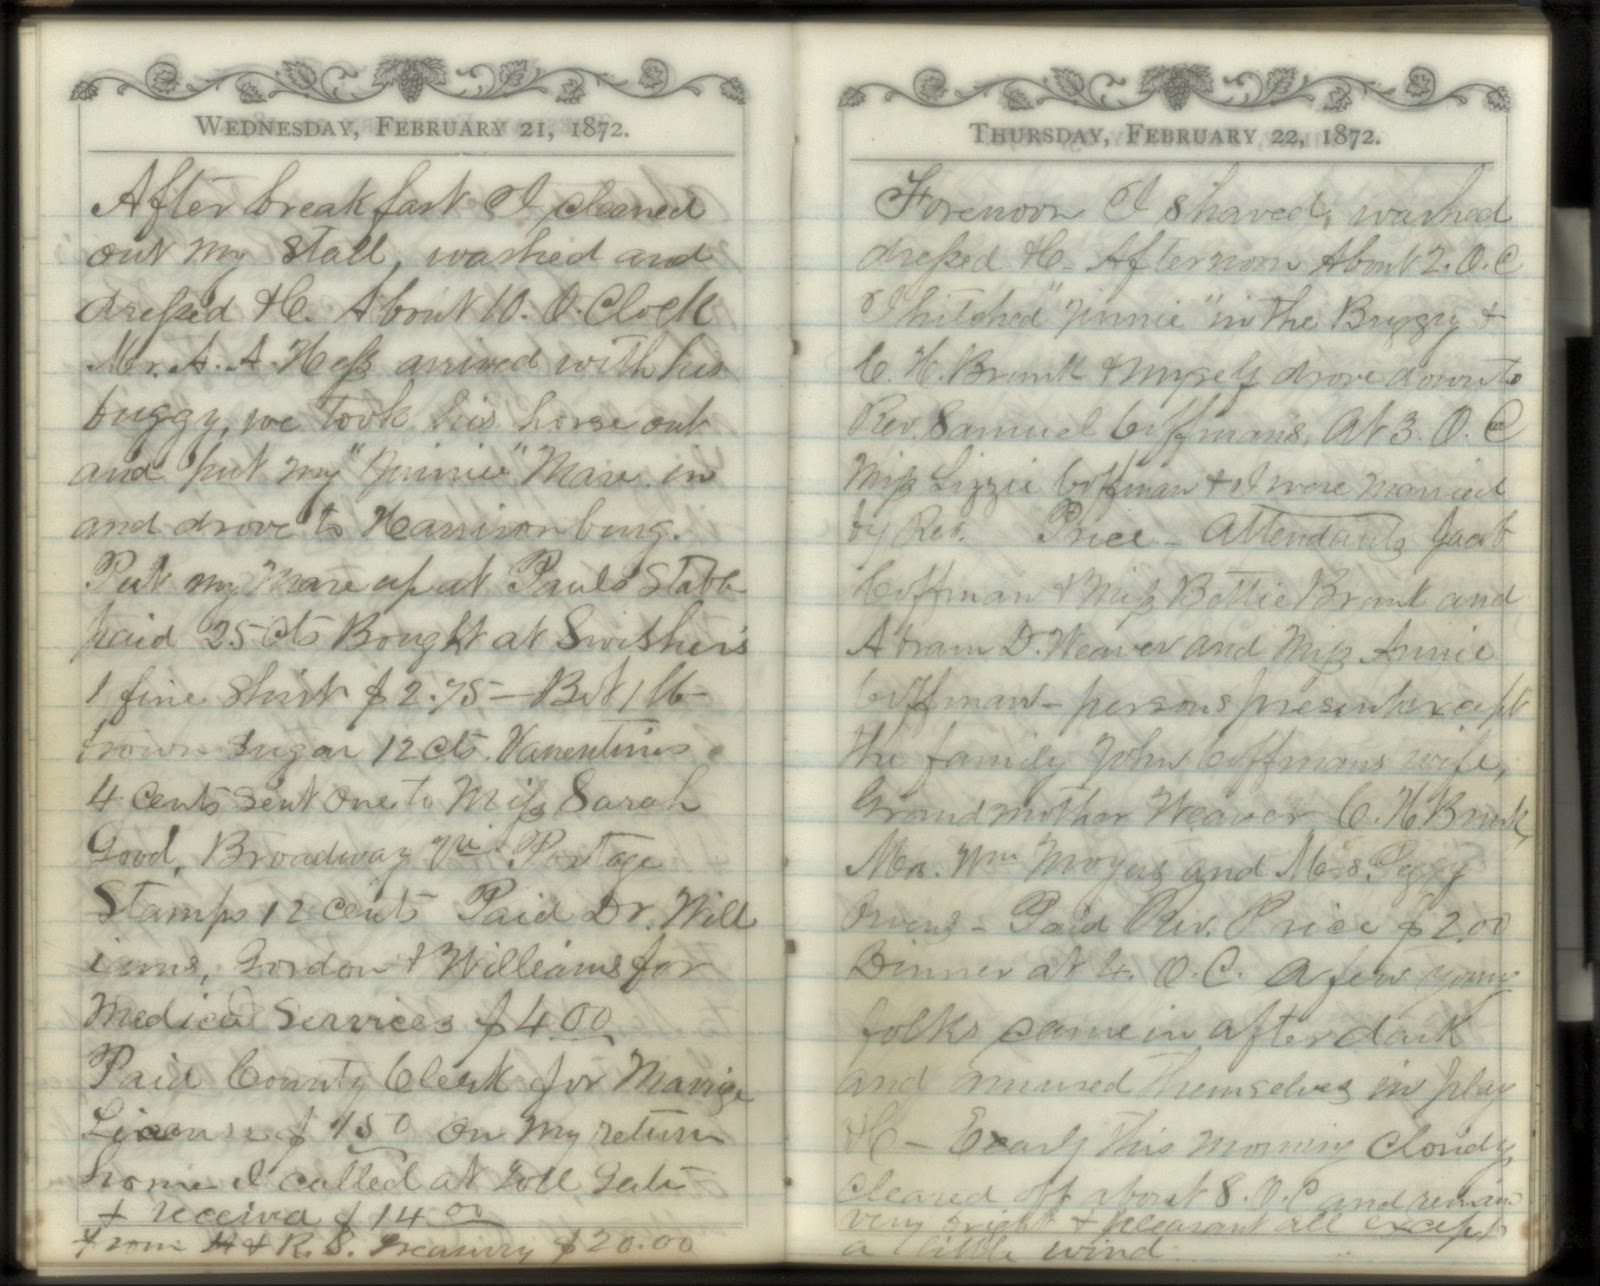 WEDNESDAY, FEBRUARY 21, 1872.
After breakfast I cleaned
out my stall, washed and
dressed &C. About 10. O. Clock
Mr. A. A. Hess arrived with his
buggy, we took his horse out
and put my "Jinnie" Mare in
and drove to Harrisonburg.
Put my Mare up at Pauls Stable
paid 25 Cts Bought at Swisher's
1 fine Shirt $2.75 — 1 lb
brown sugar 12 Cts.
4 cents sent one to Miss Sarah
Good, Broadway Postage
Stamps 12 cents Paid Dr. Will
iams, Gordon & Williams for
Medical Services $4.00
Paid County Clerk for Marrige
License $1.50 on my return
home I called at Toll Gate
& received $14.00
from & R. S. Treasury $20.00
THURSDAY, FEBRUARY 22, 1872.
Forenoon I shaved, washed
dressed &C - Afternoon About 2. O. C
I hitched "Jinnie" in the Buggy &
C. H. Brunk & myself drove down to
Rev. Samuel Coffmans, At 3. O. C
Miss Lizzie Coffman & I were married
by Rev. Price - Attendants Jacob
Coffman & Miss Bettie Brunk and
Abram D. Weaver and Miss Annie
Coffman - persons present except
the family John Coffmans wife,
Grandmother Weaver C. H. Brunk,
Wm Moyers and Mrs. Peggy
Owens - Paid Rev. Price $2.00
Dinner at 4. O. C. A few young
folks came in after dark
and amused themselves in play
&C - Early this morning cloudy,
cleared off about 8. O. C and remain
very bright & pleasant all except
a little wind